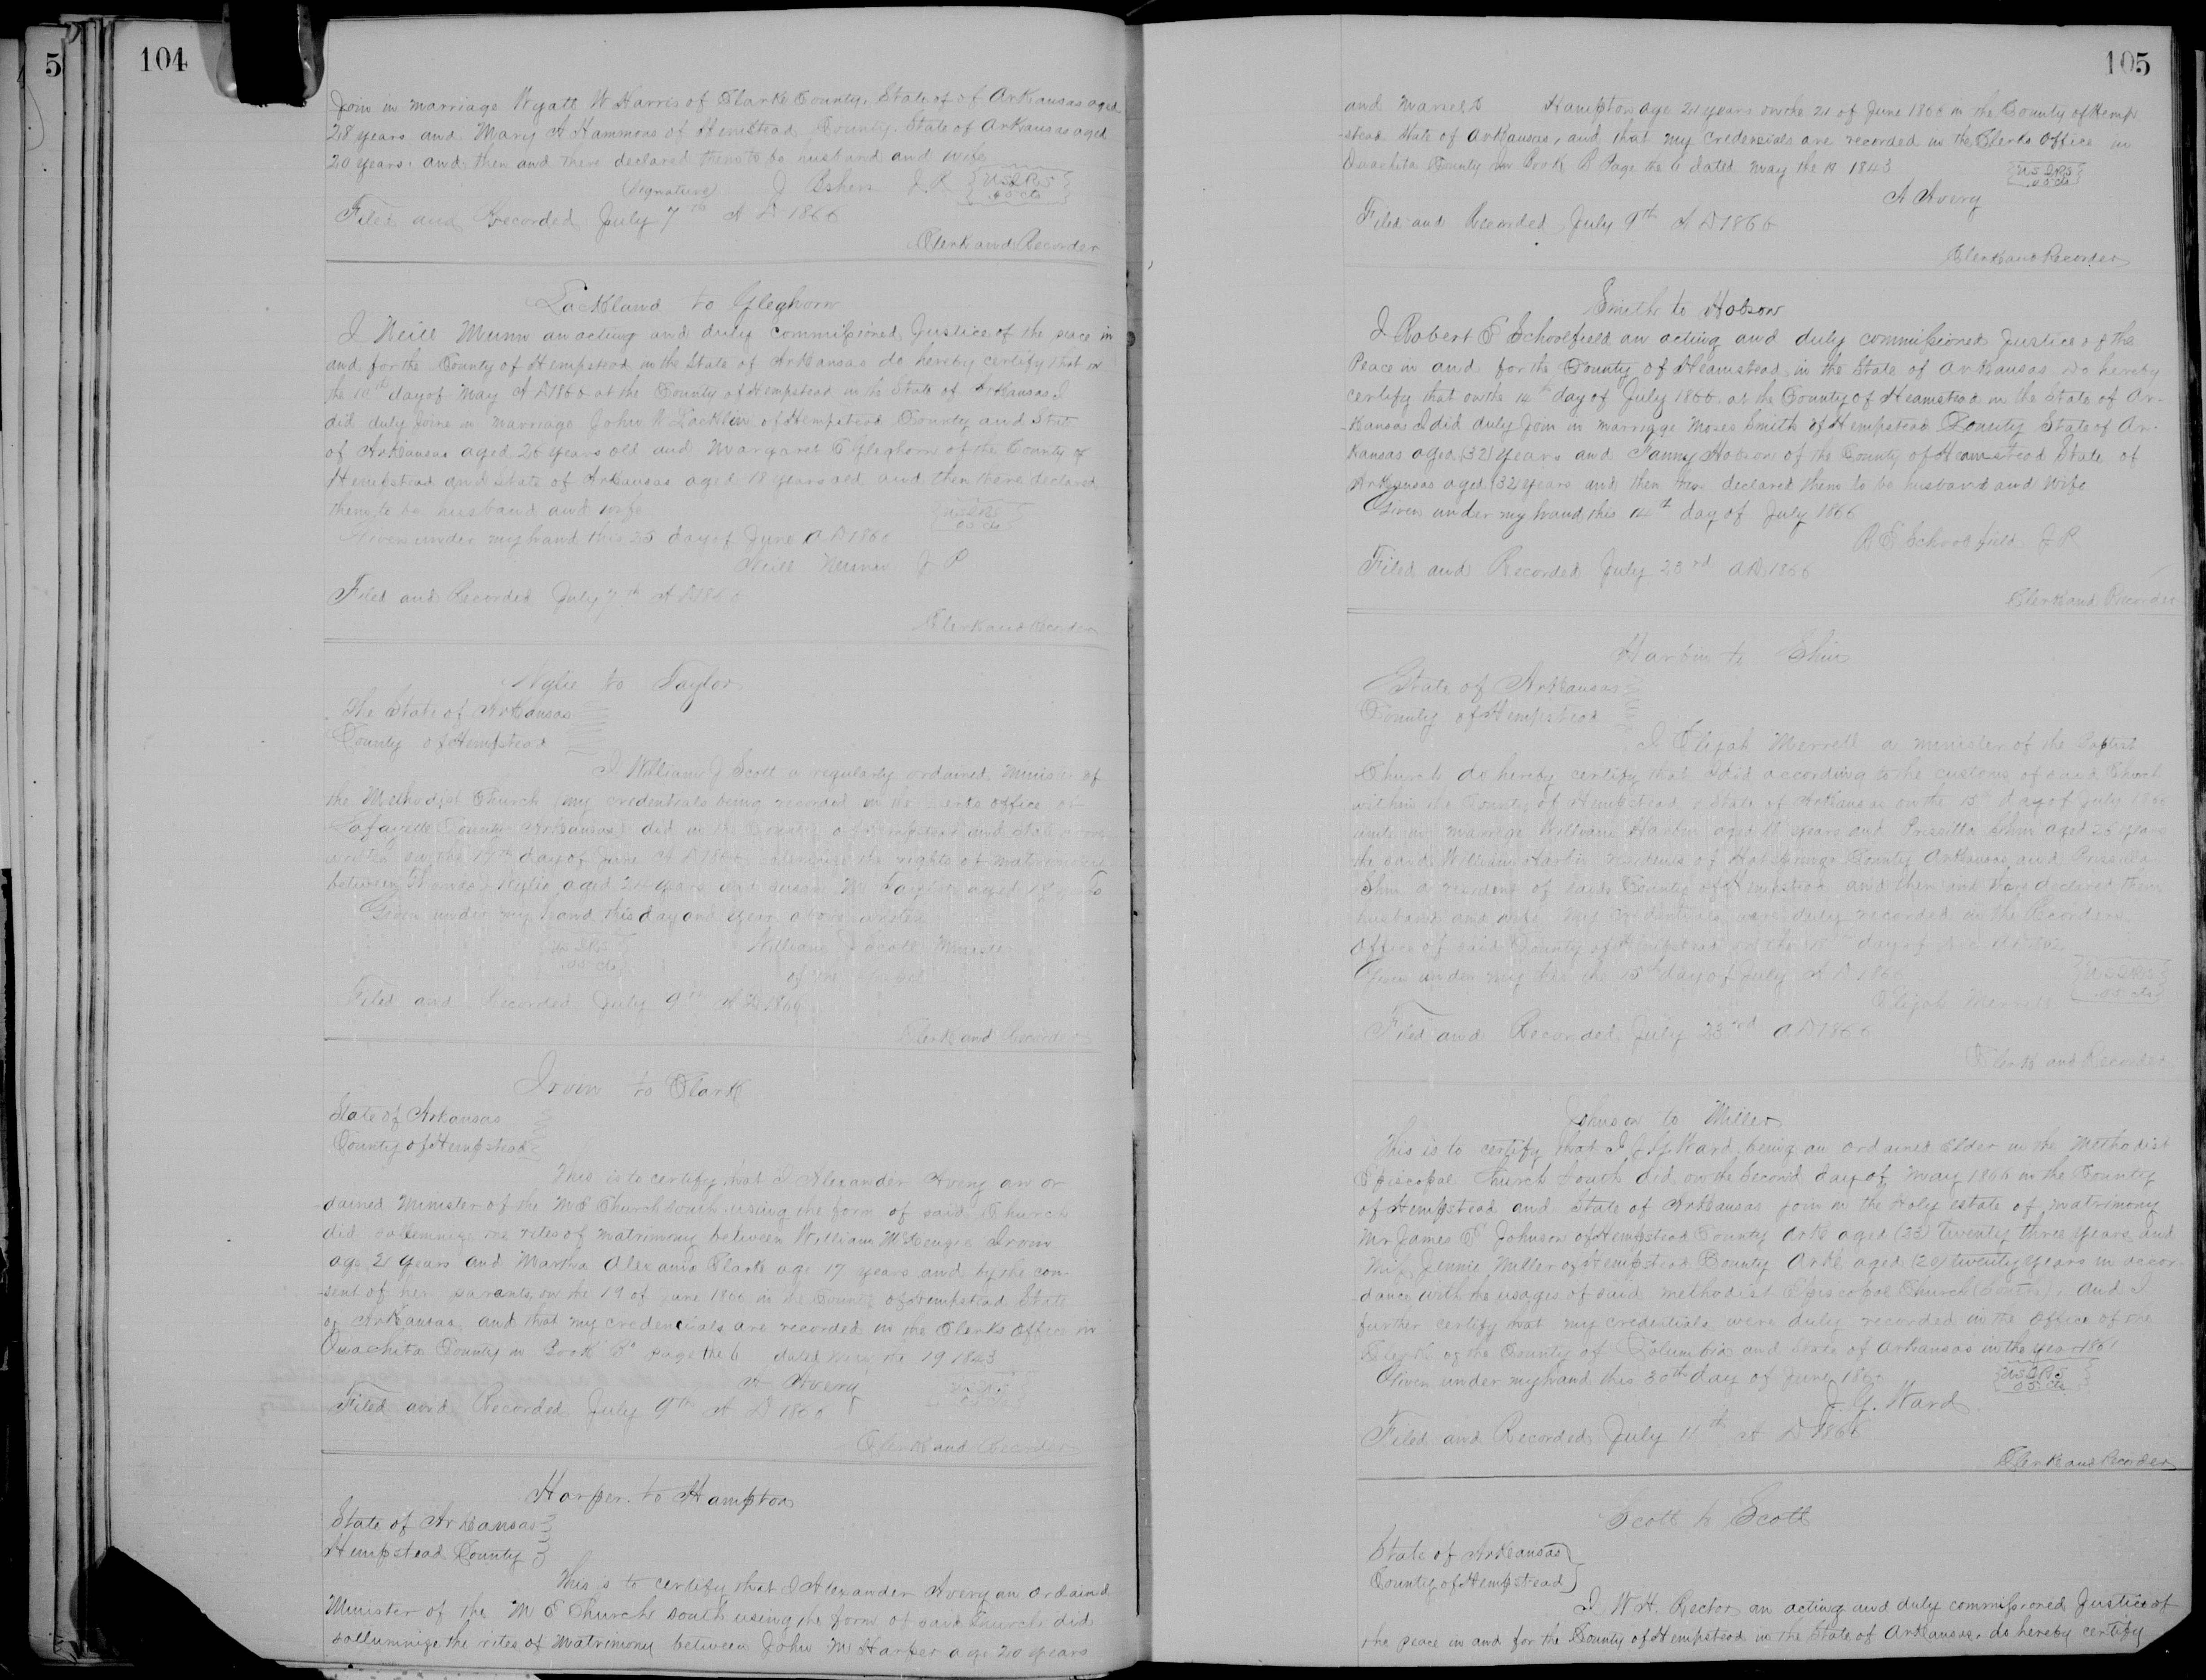 5
104
Join in marriage Wyatt W Harris of Clark County, State of of Arkansas aged
28 years and Mary A Hammons of Hemstead County. State of Arkansas aged
20 years. and then and there declared them to be husband and wife
(Signature) J P
U S I R S
.05 cts
Filed and Recorded July 7th A D 1866
Clerk and Recorder
Lackland to Gleghorn
I Neill Munn an acting and duly commissioned Justice of the peace in
and for the County of Hempstead in the State of Arkansas do hereby certify that on
the 10th day of May A D 1866 at the County of Hempstead in the State of Arkansas I
did duly Joine in marriage John W Lacklin of Hempstead County and State
of Arkansas aged 26 years old and Margaret E Gleghorn of the County of
Hempstead and State of Arkansas aged 18 years old and then there declared
them to be husband and wife
U S I R S
05 cts
Given under my hand this 25 day of June A D 1866
Neill Munn J P
Filed and Recorded July 7th A D 1866
Clerk and Recorder
Wylie to Taylor
The State of Arkansas
County of Hempstead
I William J Scott a regularly ordained Minister of
the Methodist Church (my credentials being recorded in the Clerks office of
Lafayette County Arkansas) did in the County of Hempstead and State above
written on the 19th day of June A D 1866 solemnize the rights of matrimony
between Thomas J Wylie aged years and Susan M Taylor aged 19 years
Given under my hand this day and year above writen
U S I R S
.05 cts
William J Scott Minister
of the Gospel
Filed and Recorded July 9th A D 1866
Clerk and Recorder
Irvin to Clark
State of Arkansas
County of Hempstead
This is to certify that I Alexander Avery an or-
dained Minister of the M E Church South using the form of said Church
did sollemnize the rites of matrimony between William McKenzie Irvin
age 21 years and Martha Alexana Clark age 17 years and by the con-
sent of her parants, on the 19 of June 1866 in the County of Hempstead State
of Arkansas and that my credencials are recorded in the Clerks Office in
Ouachita County in Book B page the 6 dated May the 19 1843
A Avery
Filed and Recorded July 9th A D 1866
Clerk and Recorder
Harper to Hampton
State of Arkansas
Hempstead County
This is to certify that I Alexander Avery an ordaind
Minister of the M E Church South using the form of said Church did
sollumnize the rites of Matrimony between John M Harper age 20 years
105
and Hampton age 21 years on the 21 of June 1866 in the County of Hemp-
stead State of Arkansas, and that my credencials are recorded in the Clerks Office in
Ouachita County in Book B Page the 6 dated May the 1843
U S I R S
.05 cts
A Avery
Filed and Recorded July 9th A D 1866
Clerk and Recorder
Smith to Hobson
I Robert E Schoolfield an acting and duly commissioned Justice of the
Peace in and for the County of Heamstead in the State of Arkansas do hereby
certify that on the 14th day of July 1866 at the County of Heamstead in the State of Ar-
kansas I did duly Join in marriage Moses Smith of Hempstead County State of Ar-
kansas aged (32) years and Fanny Hobson of the County of Heamstead State of
Arkansas aged (32) years and then there declared them to be husband and Wife
Given under my hand this 14th day of July 1866
R E Schoolfield J P
Filed and Recorded July 23rd A D 1866
Clerk and Recorder
Harbin to Shin
State of Arkansas
County of Hempstead
I Elijah Merrell a minister of the Baptist
Church do hereby certify that I did according to the customs of said Church
within the County of Hempstead & State of Arkansas on the 15th day of July 1866
unite in marriage William Harbin aged 18 years and Prissilla Shin aged 26 years
the said William Harbin residents of Hotsprings County Arkansas and Prissilla
Shin a resident of said County of Hempstead and then and there declared them
husband and wife my credentials were duly recorded in the Recorders
office of said County of Hempstead on the day of
Given under my this the 15th day of July A D 1866
U S I R S
.05 cts
Elijah Merrell
Filed and Recorded July 23rd A D 1866
Clerk and Recorder
Johnson to Miller
This is to certify that I J G Ward, being an ordained Elder in the Methodist
Episcopal Church South did on the Second day of May 1866 in the County
of Hempstead and State of Arkansas join in the Holy estate of matrimony
Mr James E Johnson of Hempstead County Ark aged (23) twenty three years and
Miss Jennie Miller of Hempstead County Ark aged (20) twenty years in accor-
dance with the usages of said Methodist Episcopal Church (South). And I
further certify that my credentials were duly recorded in the Office of the
Clerk of the County of Columbia and State of Arkansas in the year 1861
Given under my hand this 30th day of June 1866
U S I R S
05 cts
J. G. Ward
Filed and Recorded July 11th A D 1866
Clerk and Recorder
Scott to Scott
State of Arkansas
County of Hempstead
I W H. Rector an acting and duly commissioned Justice of
the peace in and for the County of Hempstead in the State of Arkansas. do hereby certify